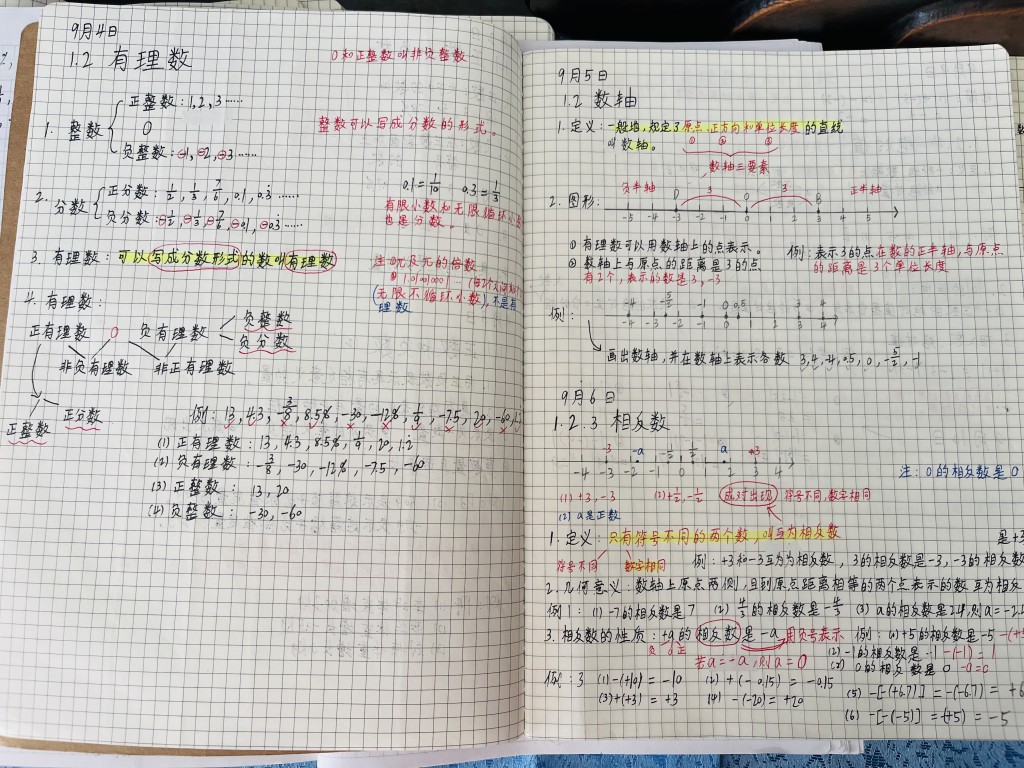 9月4日
1.2 有理数
0和正整数叫非负整数
整数可以写成分数的形式。
1. 整数
正整数:1,2,3……
0
负整数:-1,-2,-3……
2. 分数
正分数:1/2, 1/3, 7/6, 0.1, 0.3̇……
负分数:-1/2, -1/3, -7/6, -0.1, -0.3̇……
0.1=1/10 0.3̇=1/3
有限小数和无限循环小
也是分数。
3. 有理数:可以写成分数形式的数叫有理数
注:①π及π的倍数
(无限不循环小数),不是有
理数
4. 有理数:
正有理数 0 负有理数
负整数
负分数
非负有理数 非正有理数
正整数 正分数
例:13, 4.3, -3/8, 8.5%, -30, -12%, 1/9, -7.5, 20, -60, 1.2̇
(1) 正有理数:13, 4.3, 8.5%, 1/9, 20, 1.2̇
(2) 负有理数:-3/8, -30, -12%, -7.5, -60
(3) 正整数: 13, 20
(4) 负整数: -30, -60
9月5日
1.2 数轴
1. 定义:一般地,规定了原点、正方向和单位长度的直线
① ② ③
叫数轴。
数轴三要素
2. 图形:
负半轴 正半轴
D 3 0 3 B
-5 -4 -3 -2 -1 0 1 2 3 4 5
① 有理数可以用数轴上的点表示。
② 数轴上与原点的距离是3的点
有2个,表示的数是3,-3
例:表示3的点在数的正半轴,与原点
的距离是3个单位长度
例:
-4 -5/2 -1 0 0.5 3 4
-4 -3 -2 -1 0 1 2 3 4
画出数轴,并在数轴上表示各数 3, 4, -4, 0.5, 0, -5/2, -1
9月6日
1.2.3 相反数
-3 -a -1/2 1/2 a +3
-4 -3 -2 -1 0 1 2 3 4
注:0的相反数是0
(1) +3, -3 (2) +1/2, -1/2 成对出现 符号不同,数字相同
(2) a是正数
1. 定义:只有符号不同的两个数,叫互为相反数
是+3
符号不同 数字相同
例:+3和-3互为为相反数, 3的相反数是-3, -3的相反数
2. 几何意义:数轴上原点两侧,且到原点距离相等的两个点表示的数互为相反
例1:(1) -7的相反数是7 (3) a的相反数是2.4,则a=-2.4
3. 相反数的性质:+a的相反数是-a 用负号表示
负 正
若a=-a,则a=0
例:(1)+5的相反数是-5 -(+5
(2) -1的相反数是 1 -(-1)=1
0的相反数是0 -0=0
例:3 (1) -(+10) = -10 (2) +(-0.15) = -0.15
(3) +(+3) = +3 (4) -(-20) = +20
(5) -[-(+6.7)] = -(-6.7) = +6
(6) -[-(-5)] = -(+5) = -5